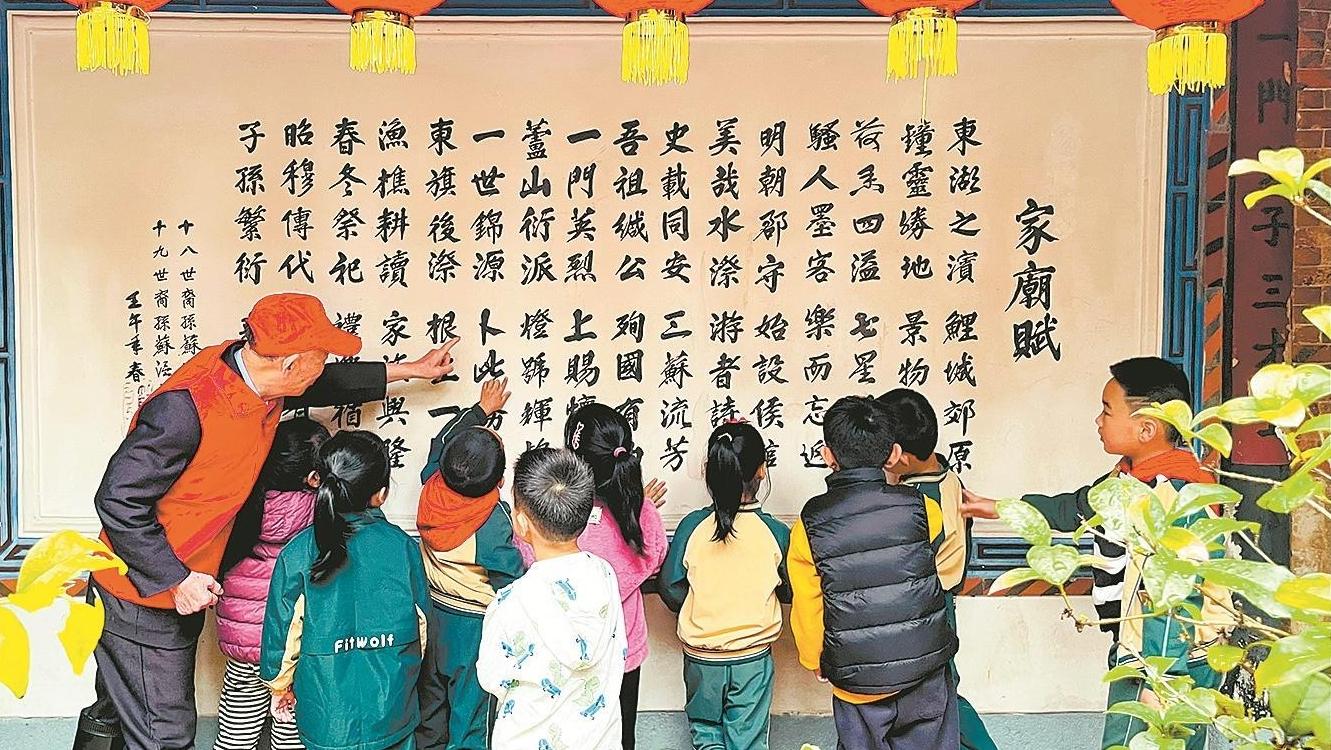 家廟賦
東湖之濱 鯉城郊原
鐘靈勝地 景物
荷香四溢 七星
騷人墨客 樂而忘返
明朝郡守 始設侯
美哉水漈 游者詩
史載同安 三蘇流芳
吾祖緘公 殉國有
一門英烈 上賜
蘆山衍派 燈號輝
一世錦源 卜此
東旗後漈 根 一
漁樵耕讀 家 興隆
春冬祭祀 禮
昭穆傳代
子孫繁衍
十八世裔孫蘇
十九世裔孫蘇
壬午年春
一門 子三
FitWolf